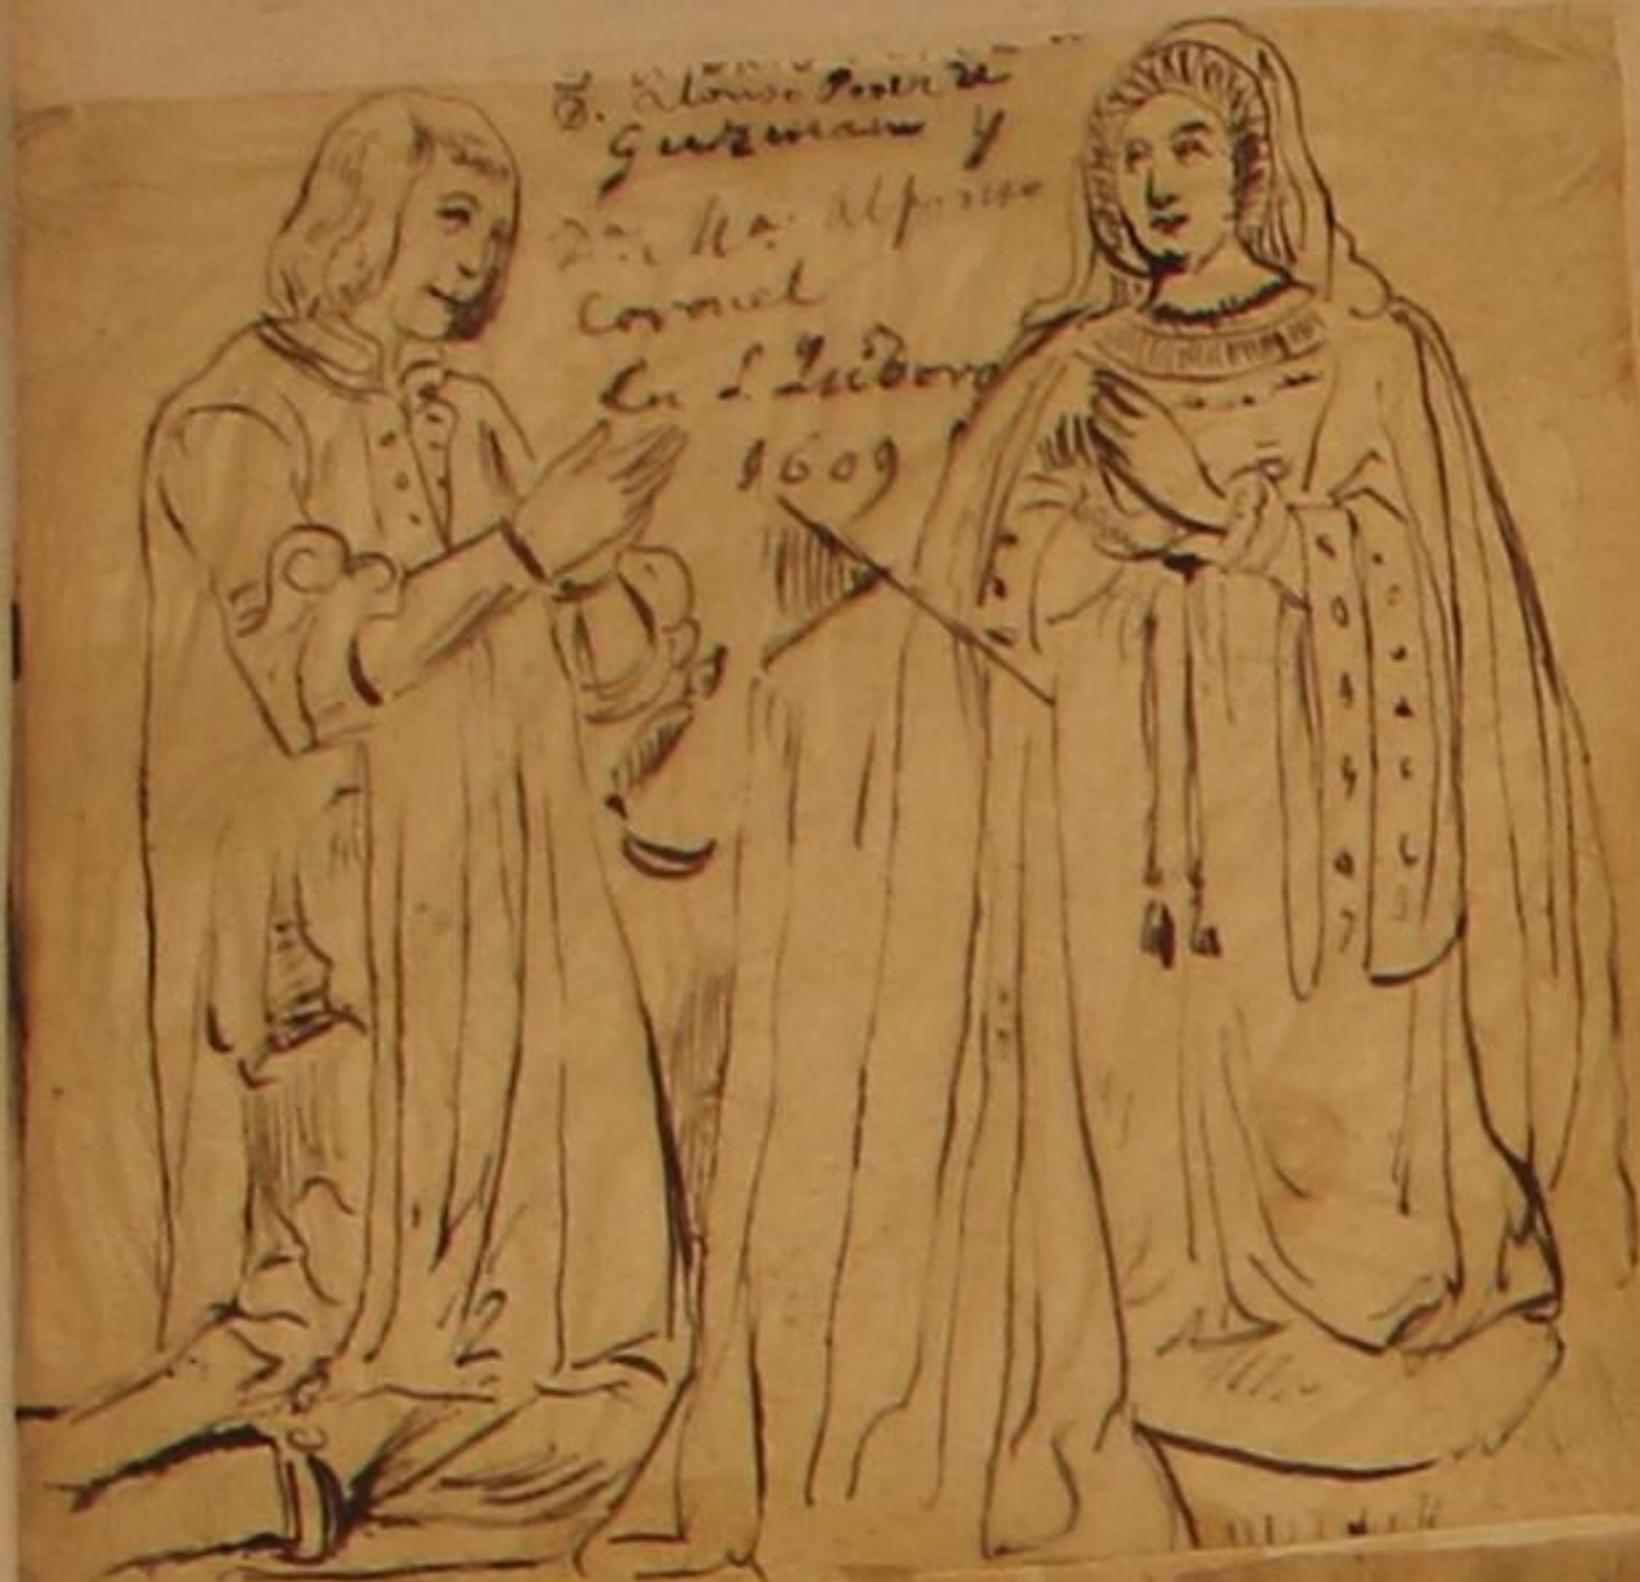 D. Alonso Perez de
Guzman y
Dª. Mª. Alfonso
Coronel
En S. Isidoro
1609